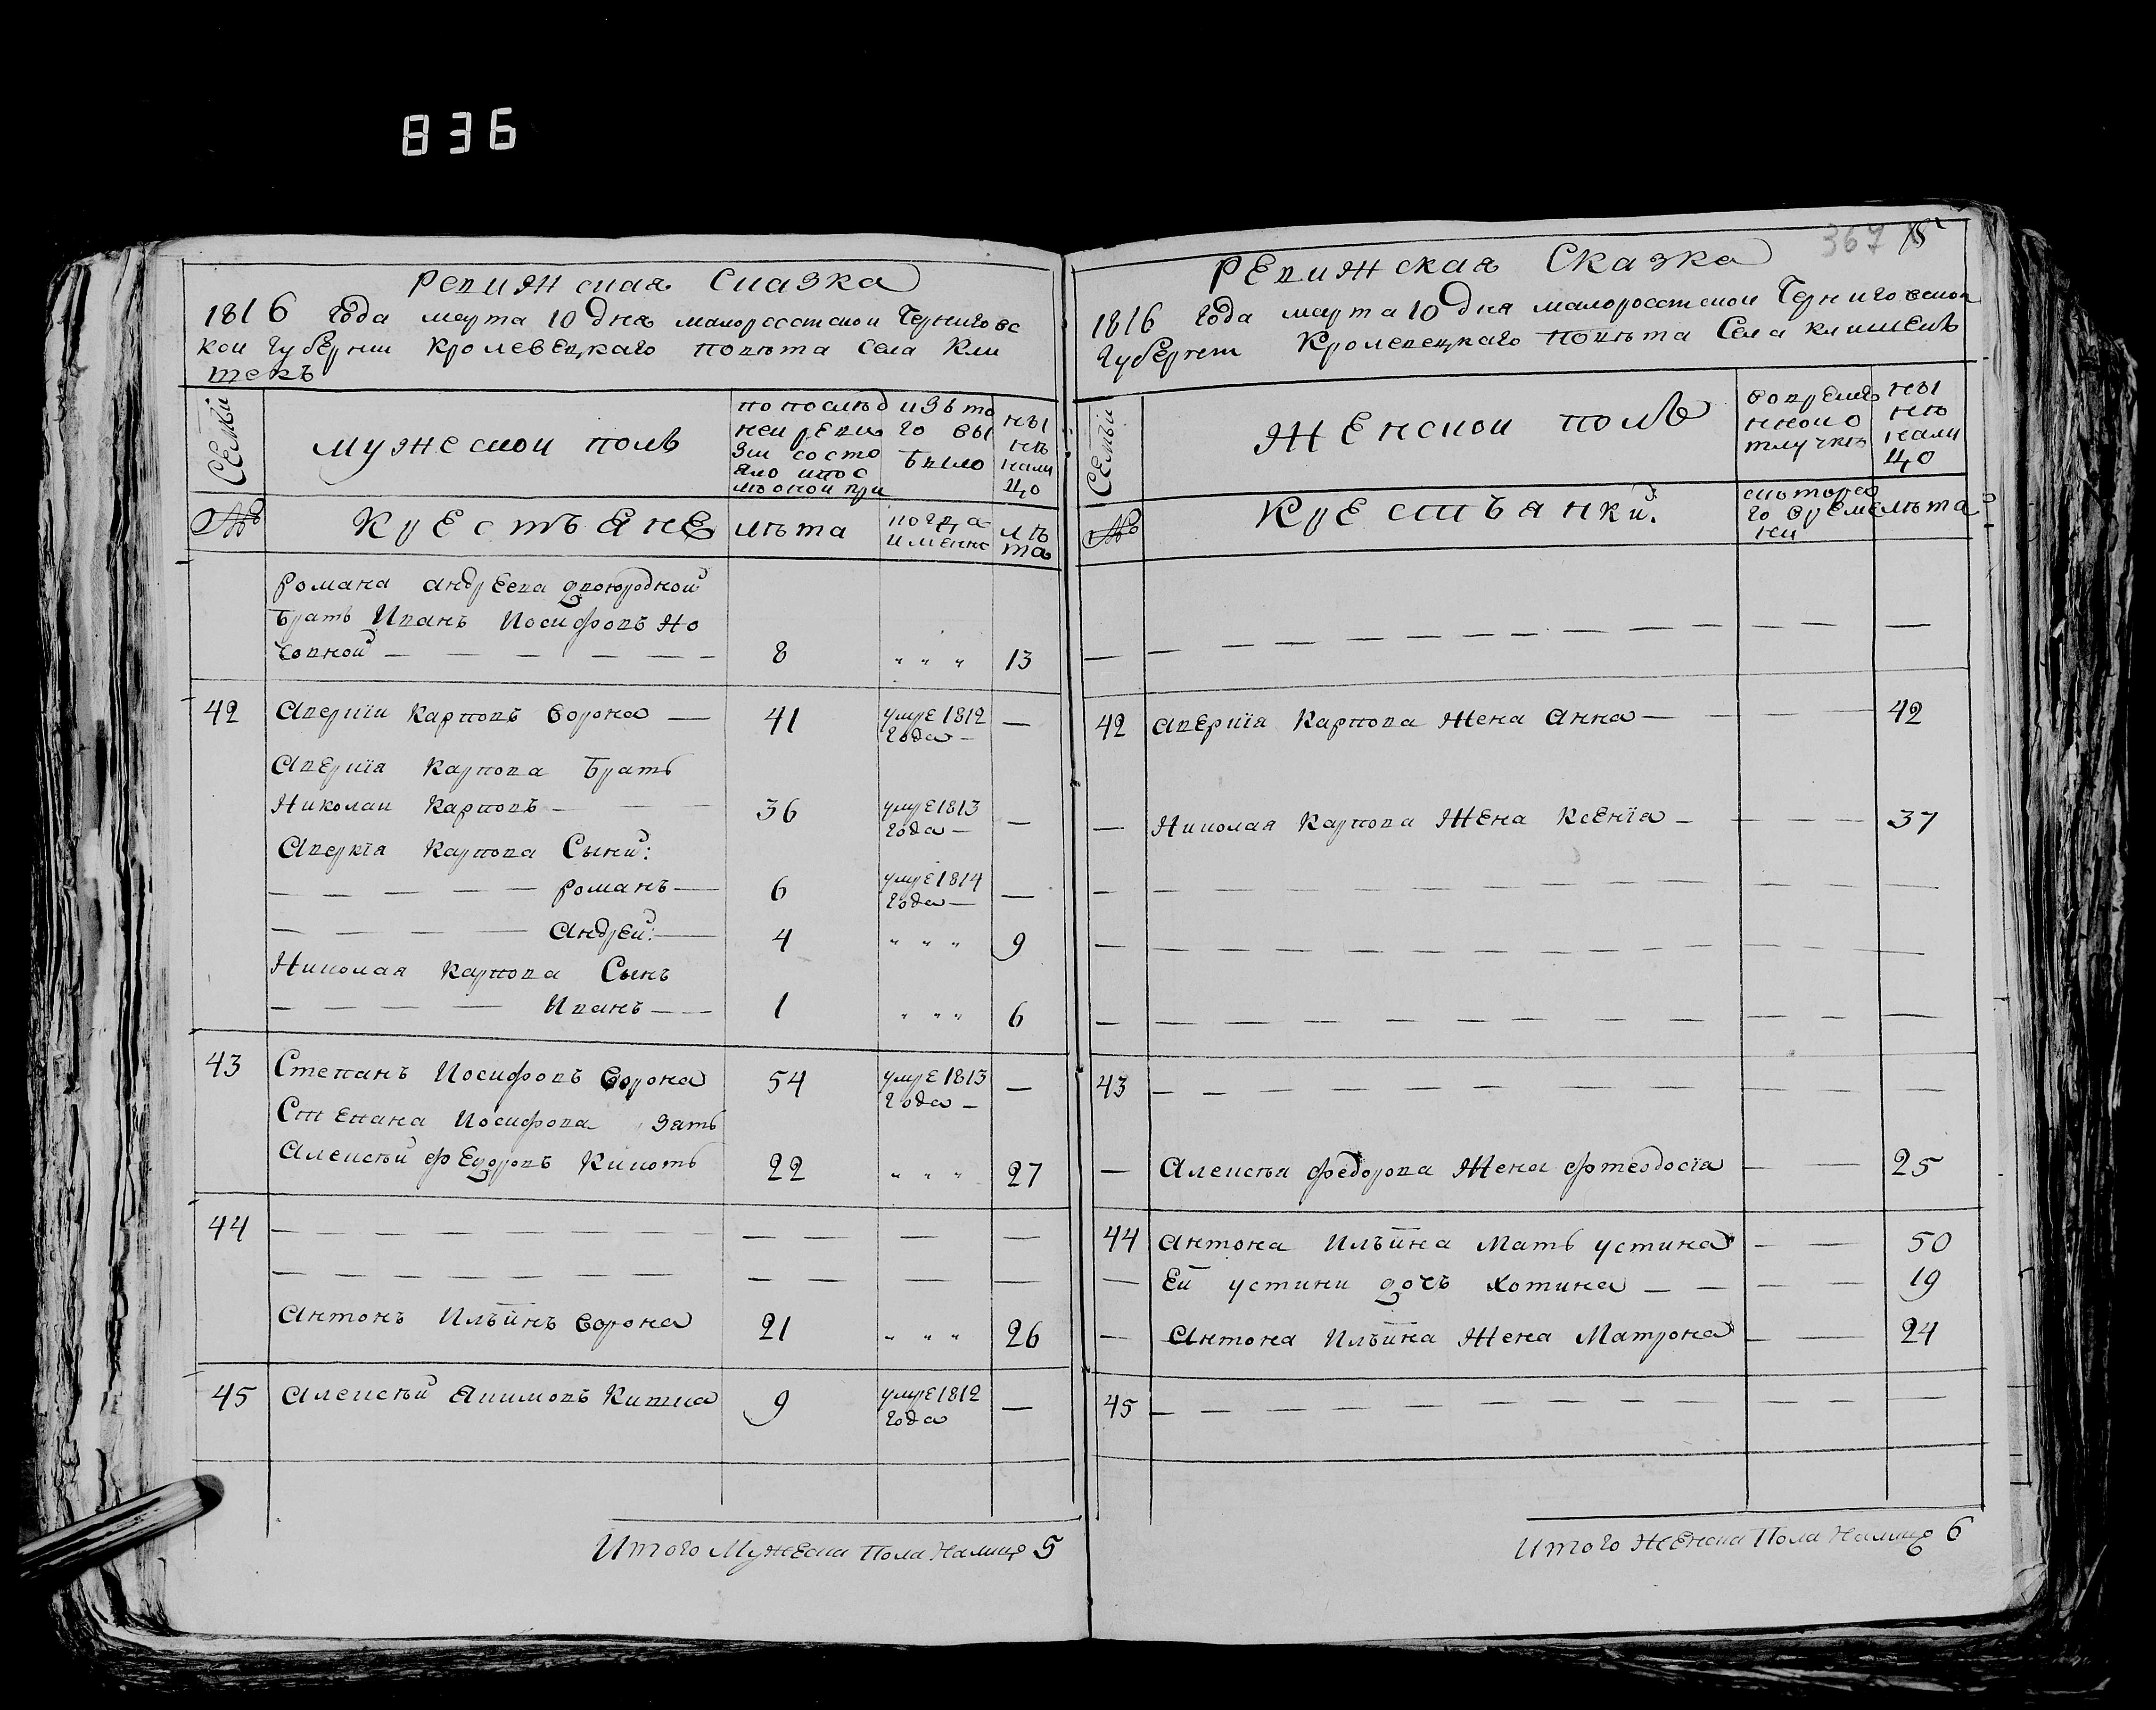 836
Ревижская Сказка
1816 года марта 10 дня малоросстской Черниговс
кои губернии Кролевецкаго повѣта Села Кли
шекъ
Семьи
мужескои полъ
по послѣд
ней реви
зіи состо
яло и пос
лѣ оной при
изъ то
го вы
было
ны
нѣ
нали
цо
№
Крестъяне
лѣта
когда
именно
лѣ
та
Романа Андреева двоюродной
братъ Иванъ Иосифовъ Но
совной — 8 " " " 13
42 Аверкіи Карповъ Ворона — 41 умре 1812
года — —
Аверкія Карпова братъ
Николаи Карповъ — 36 умре 1813
года — —
Аверкія Карпова Сыни:
Романъ — 6 умре 1814
года — —
Андреи: — 4 " " " 9
Николая Карпова Сынъ
Иванъ — 1 " " " 6
43 Степанъ Иосифовъ Ворона 54 умре 1813
года — —
Степана Иосифова зять
Алексѣй Федоровъ 22 " " " 27
44 — — — —
— — — —
Антонъ Ильинъ Ворона 21 " " " 26
45 Алексѣй Якимовъ 9 умре 1812
года —
Итого Мужеска Пола Налицо 5
367 15
Ревижская Сказка
1816 года марта 10 дня малоросстской Черниговской
губернии Кролевецкаго повѣта Села Клишекъ
Семьи
Женскои полъ
во време
нной о
тлучкѣ
ны
нѣ
нали
цо
№
Крестъянки.
с которо
го време
ни
лѣта
— — — —
42 Аверкія Карпова Жена Анна — — 42
— Николая Карпова Жена Ксенія — — 37
— — — —
— — — —
— — — —
43 — — —
— Алексѣя Федорова Жена Фтеодосія — 25
44 Антона Ильина Мать Устина — 50
— Еи Устини дочь Хотина — — 19
— Антона Ильина Жена Матрона — 24
45 — — —
Итого Женска Пола Налицо 6